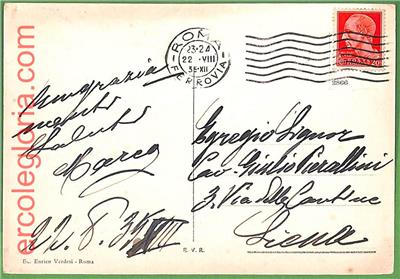 ercolegloria.com
ROMA
FERROVIA
23-24
22 · VIII
35-XIII
2866
Ringraziamenti
Saluti
Marco
22.8.35 XIII
Egregio Signor
Cav. Giulio Pierallini
3. Via delle Cantine
Siena
Ed. Enrico Verdesi - Roma
R. V. R.